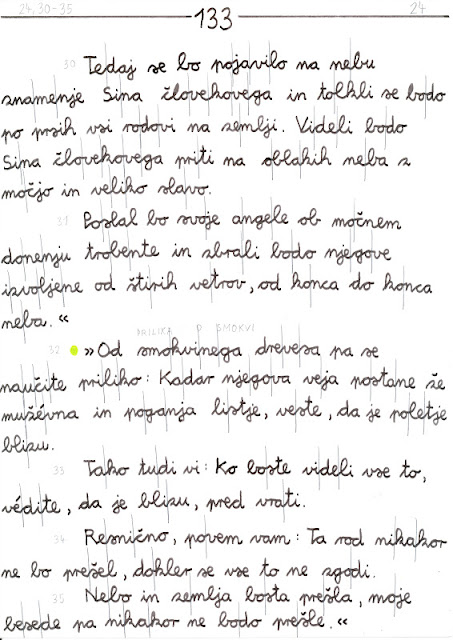 24,30-35 133 24
30 Tedaj se bo pojavilo na nebu
znamenje Sina človekovega in tolkli se bodo
po prsih vsi rodovi na zemlji. Videli bodo
Sina človekovega priti na oblakih neba z
močjo in veliko slavo.
31 Poslal bo svoje angele ob močnem
donenju trobente in zbrali bodo njegove
izvoljene od štirih vetrov, od konca do konca
neba.«
PRILIKA O SMOKVI
32 »Od smokvinega drevesa pa se
naučite priliko: Kadar njegova veja postane že
muževna in poganja listje, veste, da je poletje
blizu.
33 Tako tudi vi: Ko boste videli vse to,
védite, da je blizu, pred vrati.
34 Resnično, povem vam: Ta rod nikakor
ne bo prešel, dokler se vse to ne zgodi.
35 Nebo in zemlja bosta prešla, moje
besede pa nikakor ne bodo prešle.«